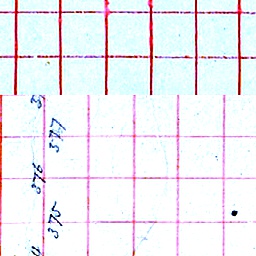 377
376
375